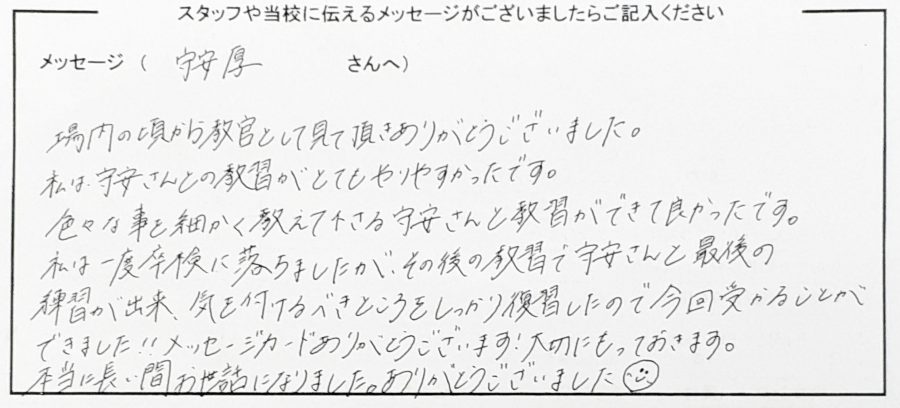 スタッフや当校に伝えるメッセージがございましたらご記入ください
メッセージ ( 守安厚 さんへ)
場内の頃から教官として見て頂きありがとうございました。
私は守安さんとの教習がとてもやりやすかったです。
色々な事を細かく教えて下さる守安さんと教習ができて良かったです。
私は一度卒検に落ちましたが、その後の教習で守安さんと最後の
練習が出来、気を付けるべきところをしっかり復習したので今回受かることが
できました!!メッセージカードありがとうございます!大切にもっておきます。
本当に長い間お世話になりました。ありがとうございました